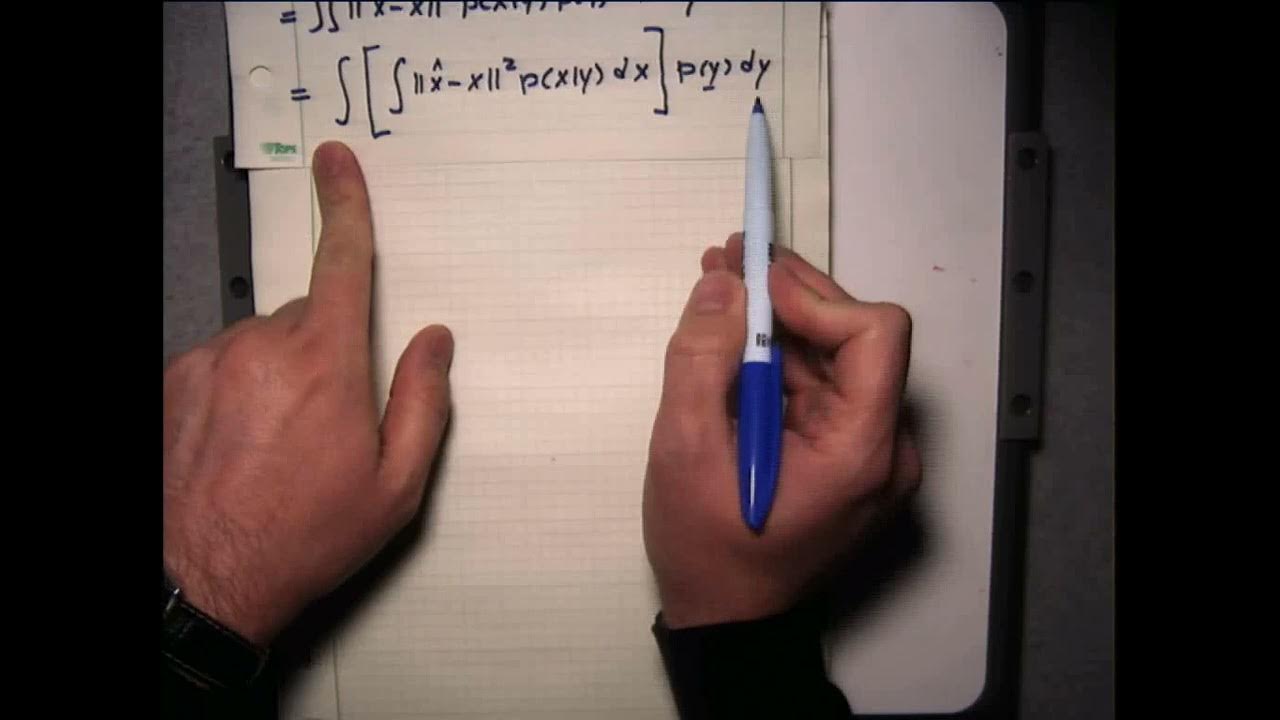 = ∫∫ ||x̂ - x||² p(x|y) p(y)
= ∫ [ ∫ ||x̂ - x||² p(x|y) dx ] p(y) dy
TOPS